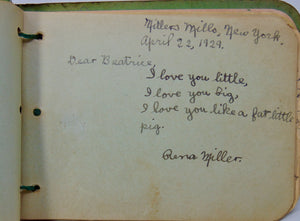 Millers Mills, New York.
April 22, 1929.
Dear Beatrice,
I love you little,
I love you big,
I love you like a fat little
pig.
Rena Miller.